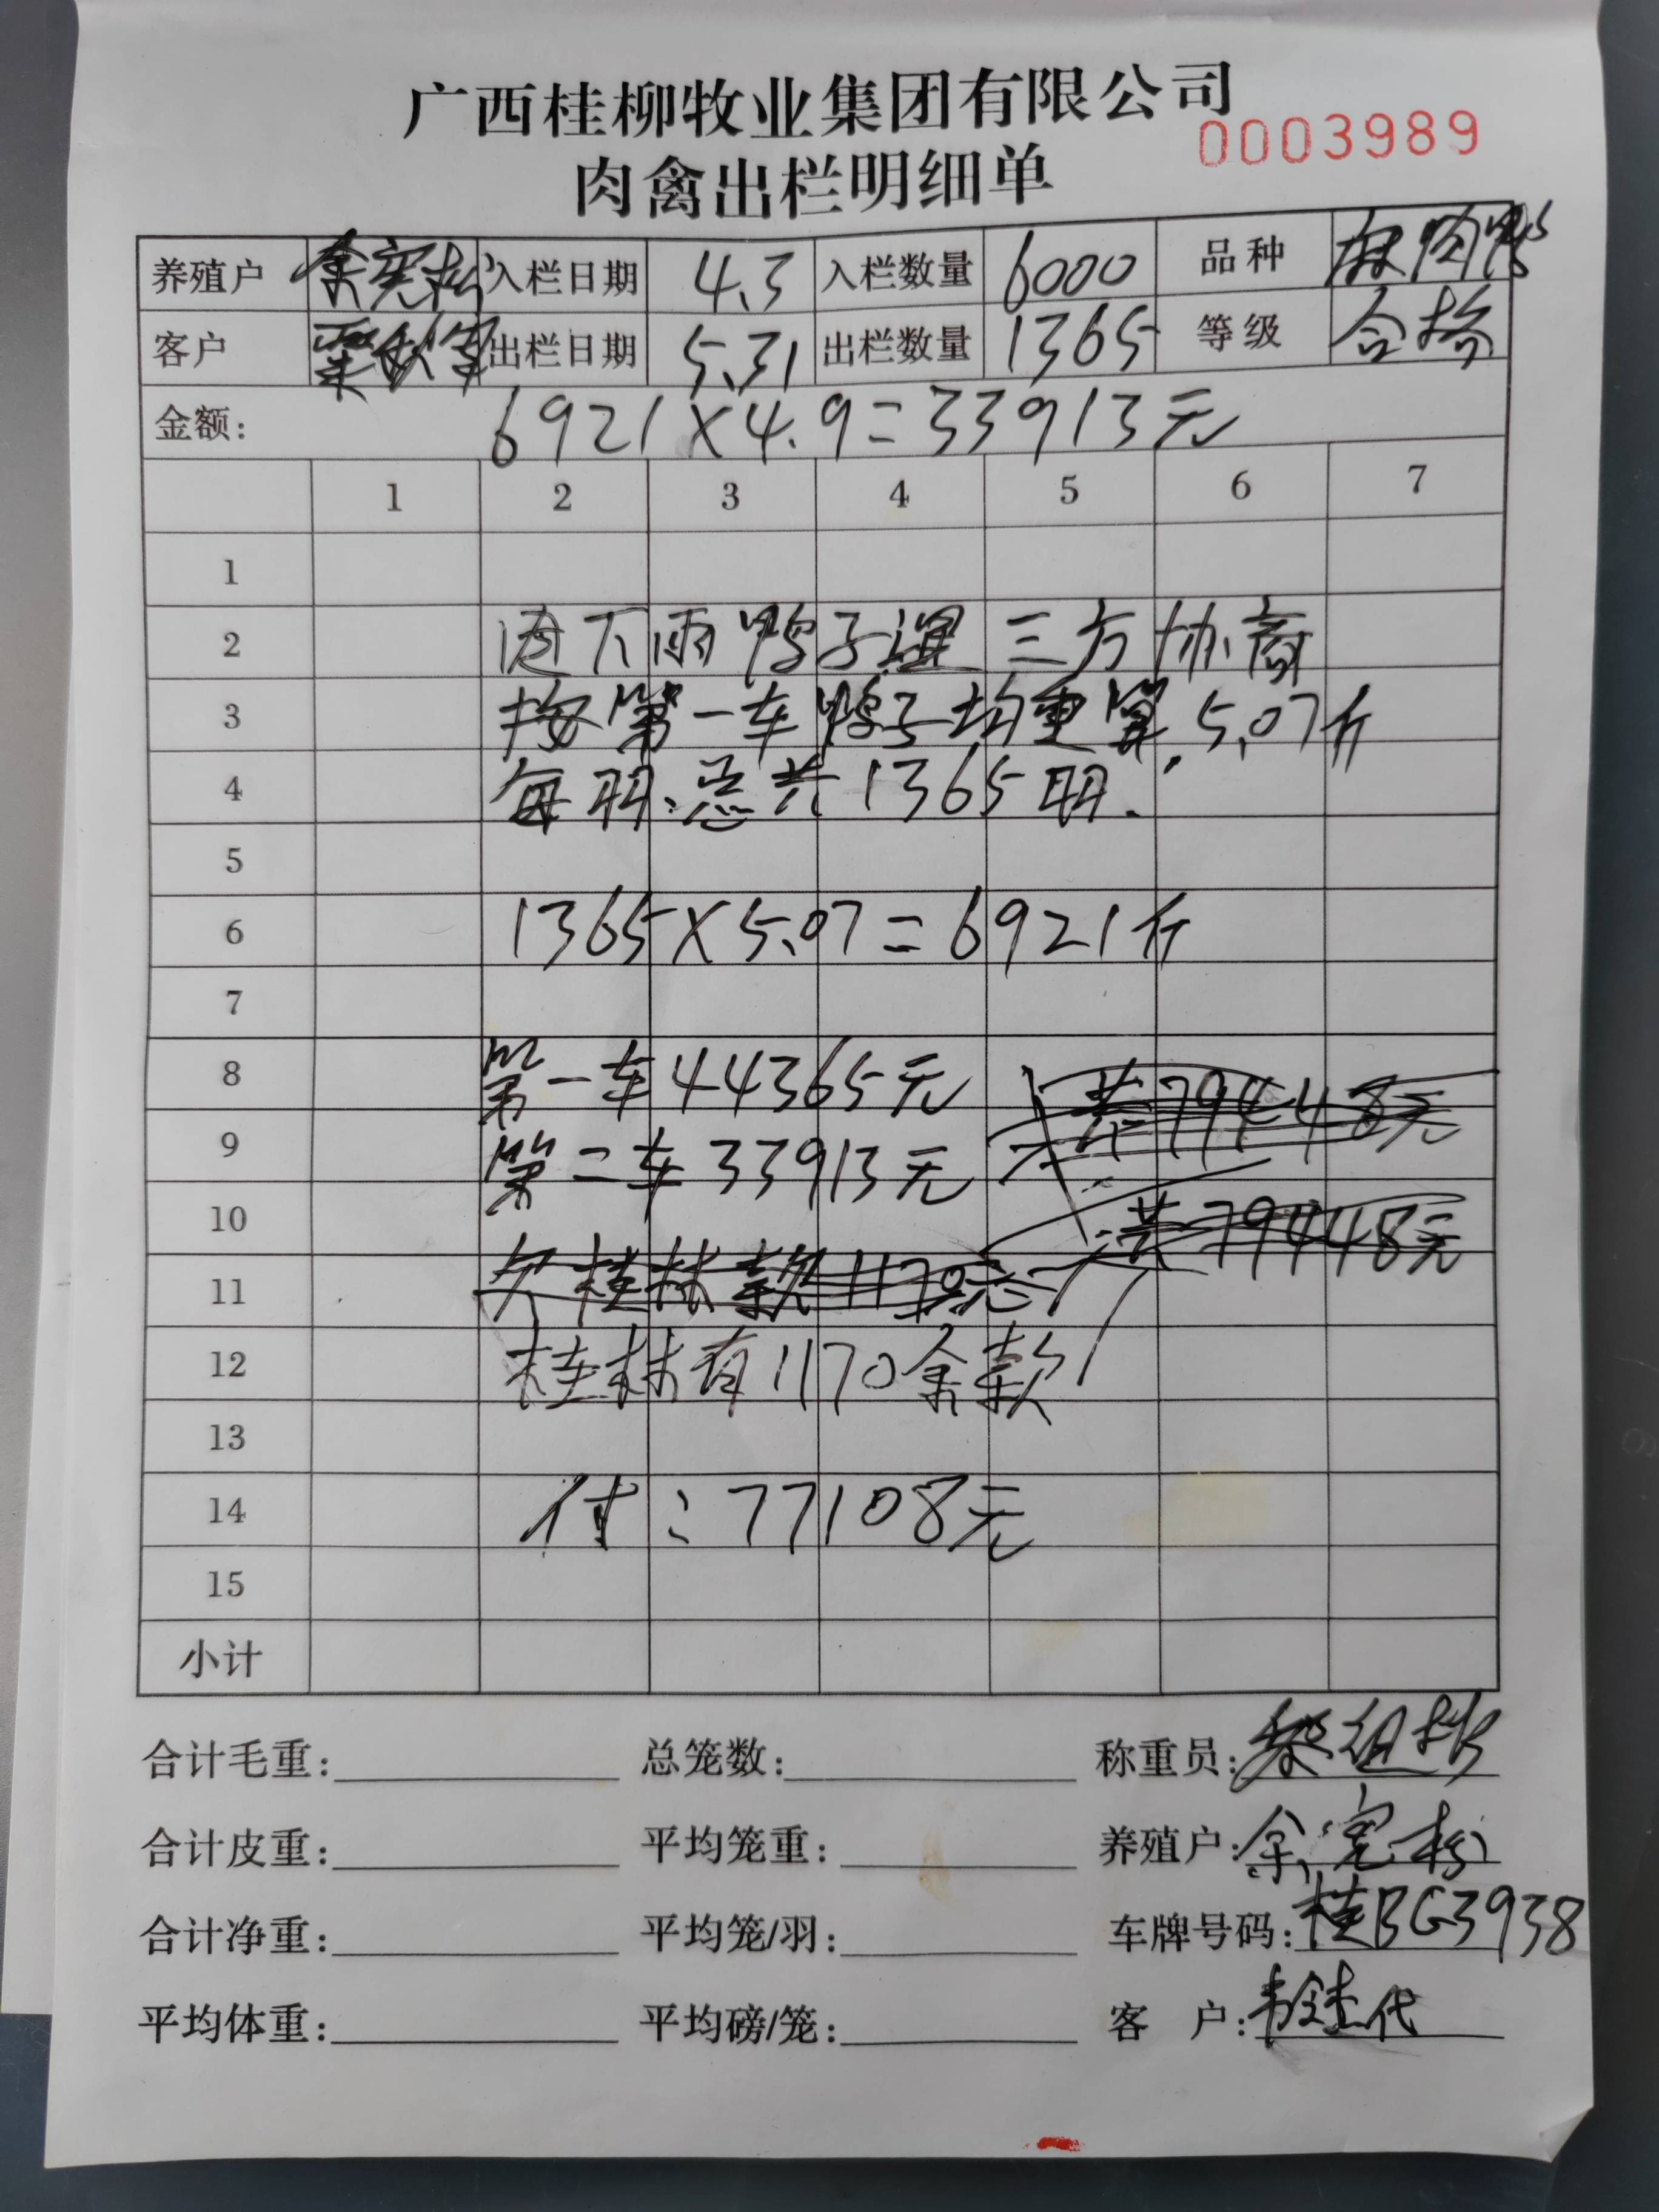 广西桂柳牧业集团有限公司
0003989
肉禽出栏明细单
养殖户 余宪松 入栏日期 4.3 入栏数量 6000 品种 麻肉鸭
客户 出栏日期 5.31 出栏数量 1365 等级 合格
金额: 6921×4.9=33913元
1 2 3 4 5 6 7
1
2 因下雨鸭子湿 三方协商
3 按第一车鸭子均重算,5.07斤
4 每羽.总共1365羽.
5
6 1365×5.07=6921斤
7
8 第一车44365元 共79448元
9 第二车33913元
10 共79448元
11 欠桂林款1170元
12 桂林有1170余款
13
14 付:77108元
15
小计
合计毛重: 总笼数: 称重员:
合计皮重: 平均笼重: 养殖户:余宪松
合计净重: 平均笼/羽: 车牌号码:桂BG3938
平均体重: 平均磅/笼: 客 户:代